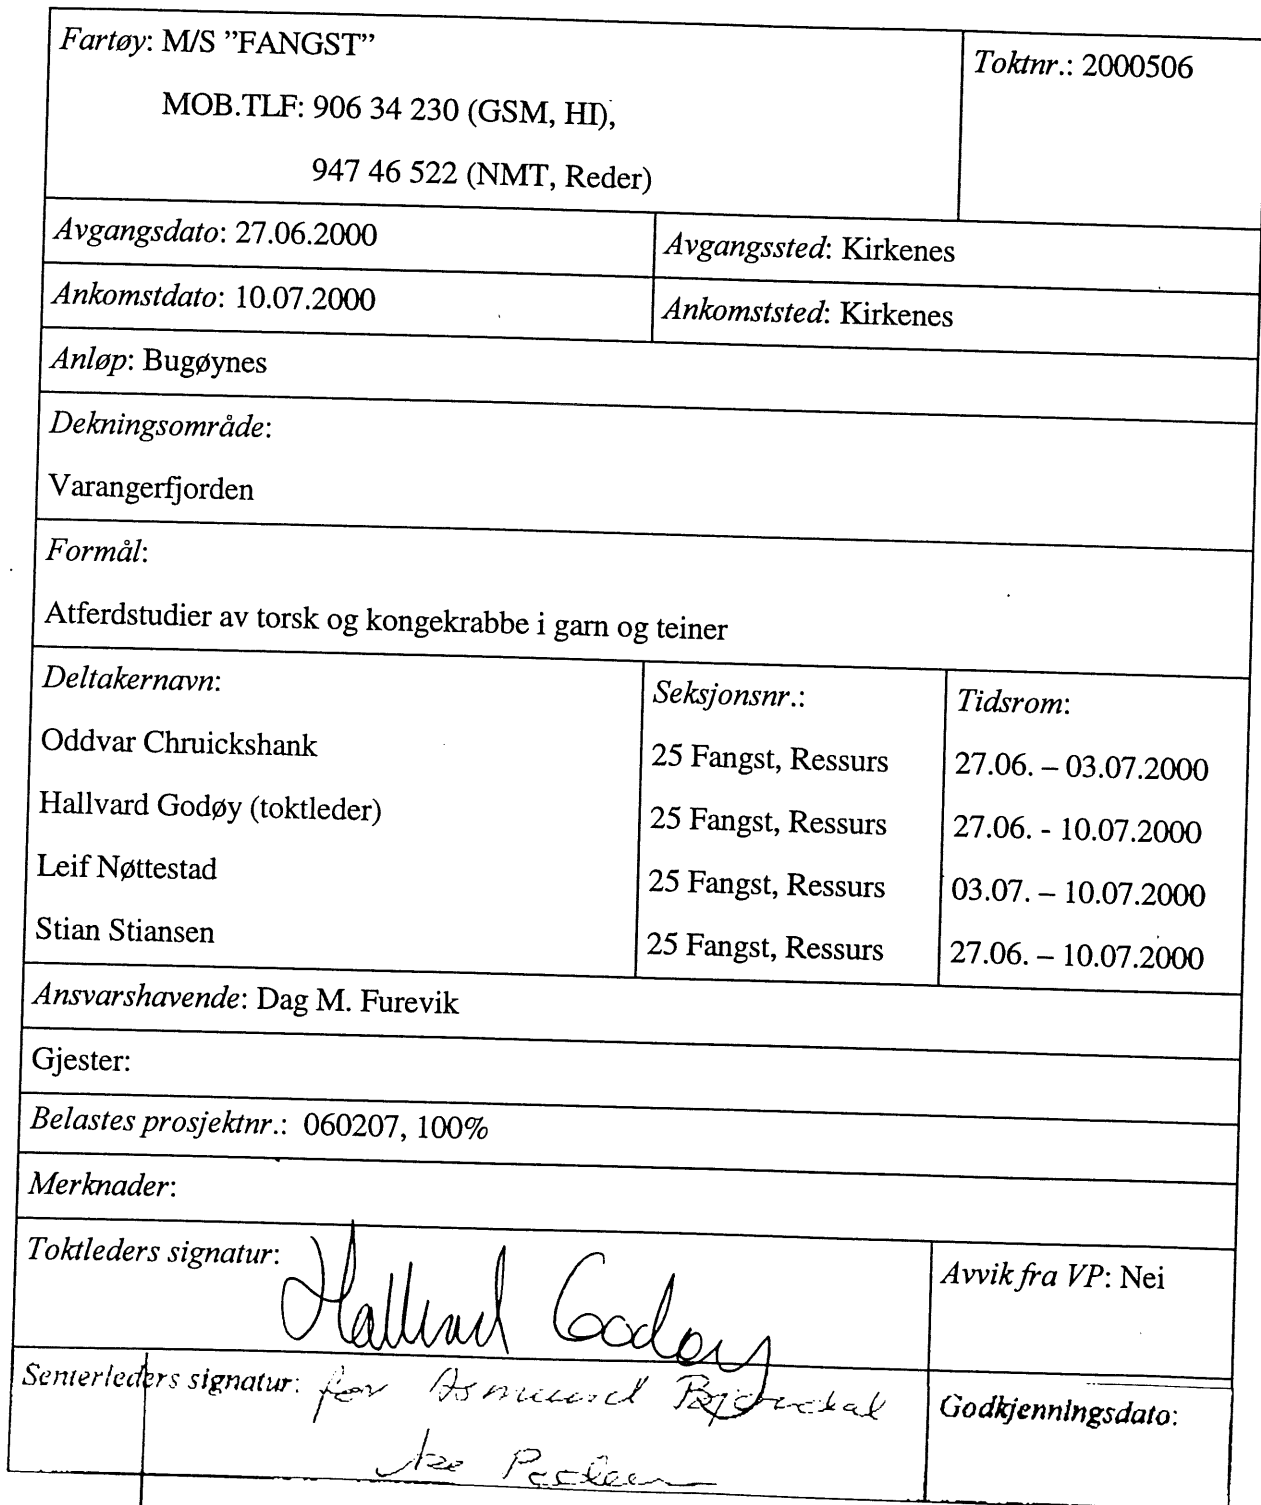 Fartøy: M/S "FANGST" Toktnr.: 2000506
MOB.TLF: 906 34 230 (GSM, HI),
947 46 522 (NMT, Reder)
Avgangsdato: 27.06.2000 Avgangssted: Kirkenes
Ankomstdato: 10.07.2000 Ankomststed: Kirkenes
Anløp: Bugøynes
Dekningsområde:
Varangerfjorden
Formål:
Atferdstudier av torsk og kongekrabbe i garn og teiner
Deltakernavn: Seksjonsnr.: Tidsrom:
Oddvar Chruickshank 25 Fangst, Ressurs 27.06. – 03.07.2000
Hallvard Godøy (toktleder) 25 Fangst, Ressurs 27.06. - 10.07.2000
Leif Nøttestad 25 Fangst, Ressurs 03.07. – 10.07.2000
Stian Stiansen 25 Fangst, Ressurs 27.06. – 10.07.2000
Ansvarshavende: Dag M. Furevik
Gjester:
Belastes prosjektnr.: 060207, 100%
Merknader:
Toktleders signatur: Hallvard Godøy Avvik fra VP: Nei
Senterleders signatur: for Asmund Bjordal Godkjenningsdato: